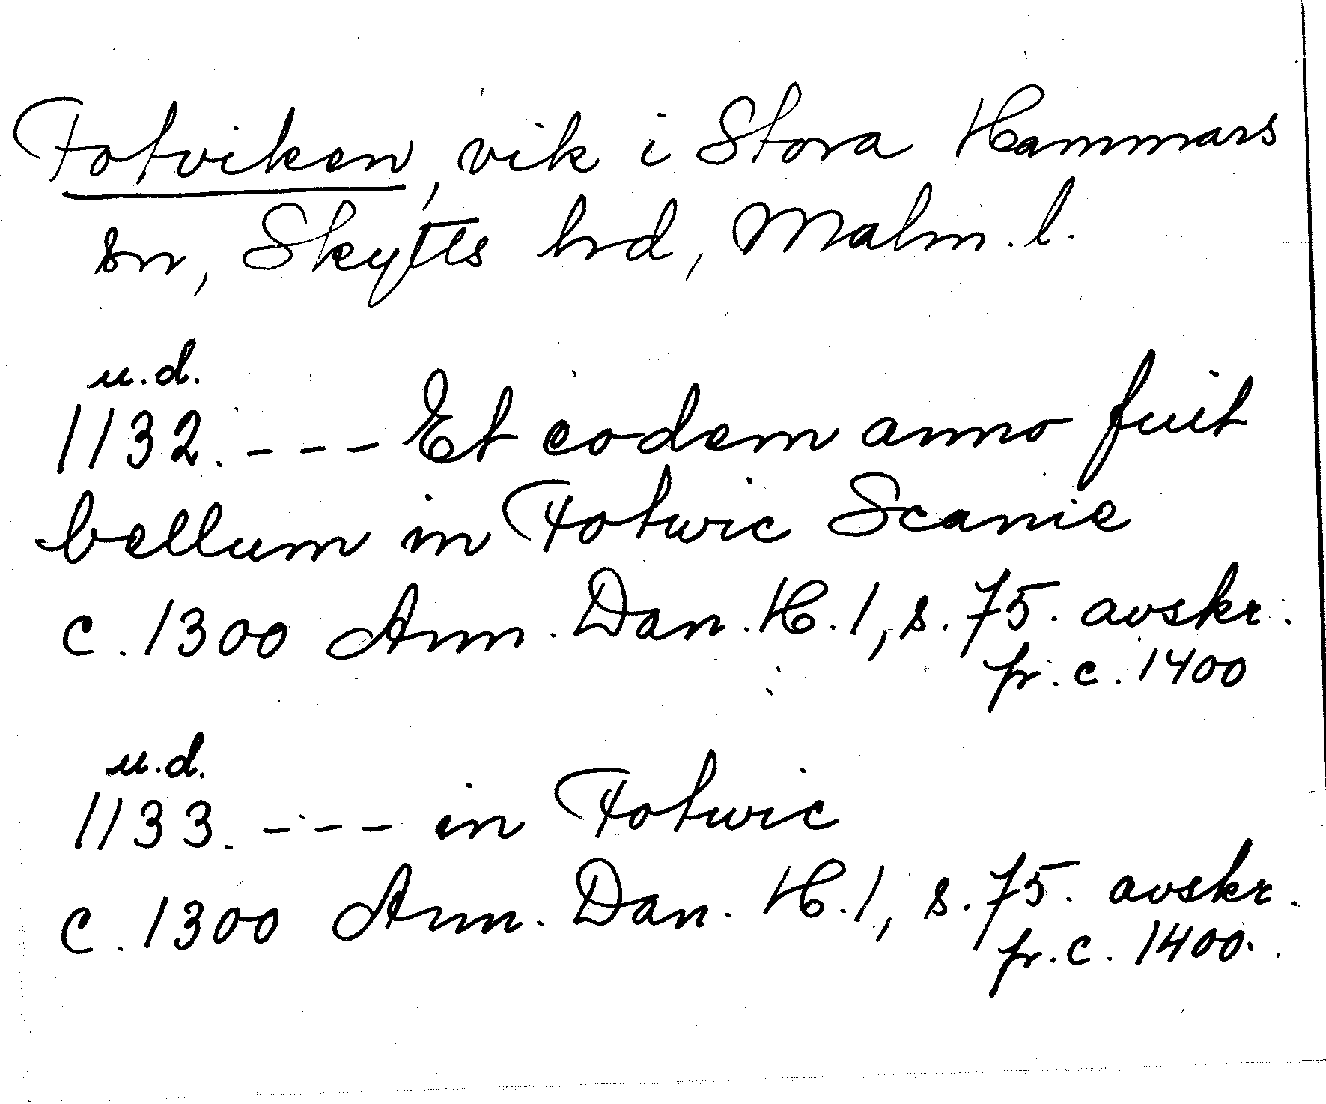 Fotviken, vik i Stora Hammars
sn, Skytts hrd, Malm. l.
u.d.
1132. --- Et eodem anno fuit
bellum in Fotwic Scanie
c. 1300 Ann. Dan. H. 1, s. 75. avskr.
fr. c. 1400
u.d.
1133. --- in Fotwic
c. 1300 Ann. Dan. H. 1, s. 75. avskr.
fr. c. 1400.